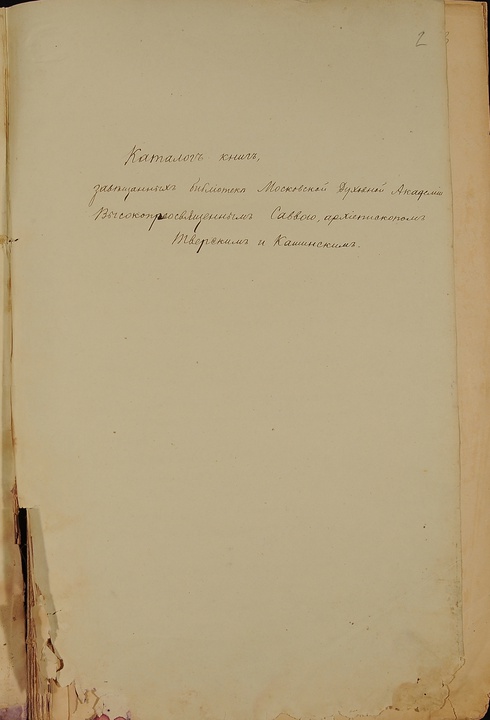 2
Каталогъ книгъ,
завѣщанныхъ библіотекѣ Московской Духовной Академіи
Высокопреосвященнымъ Саввою, архіепископомъ
Тверскимъ и Кашинскимъ.